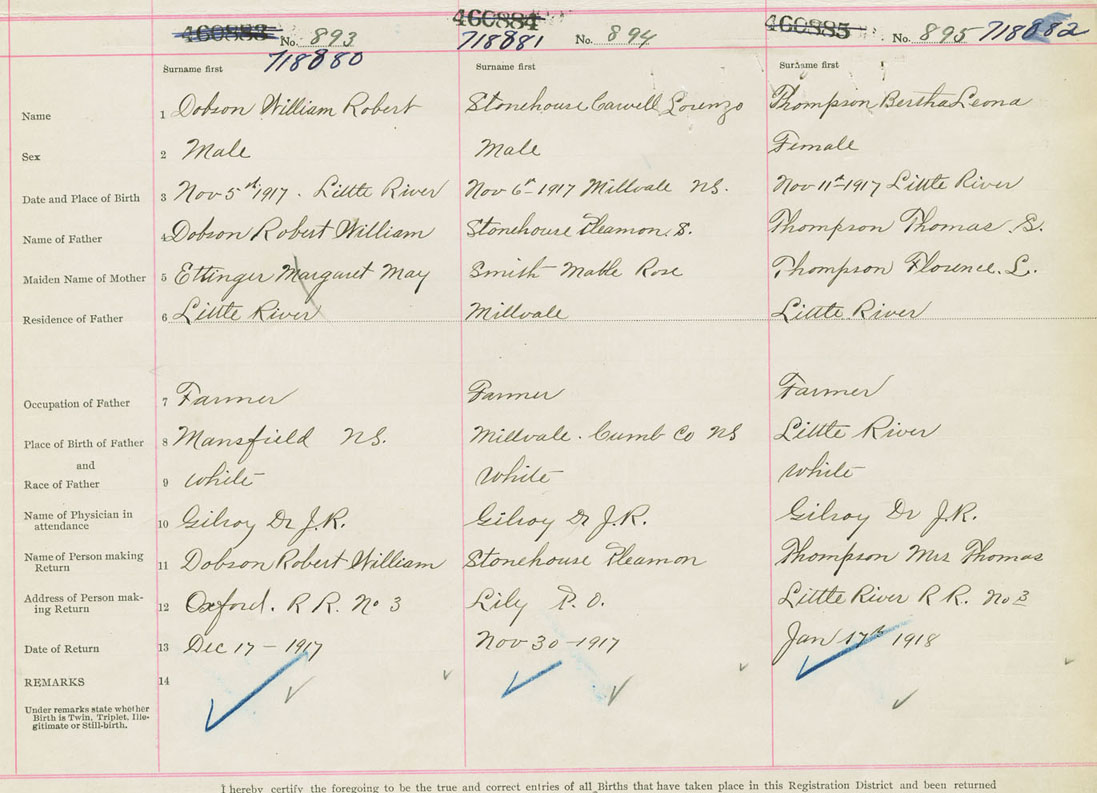 460883 No. 893 460884 No. 894 460885 No. 895 718882
718880 718881
Surname first Surname first Surname first
Name 1 Dobson William Robert Stonehouse Carvell Lorenzo Thompson Bertha Leona
Sex 2 Male Male Female
Date and Place of Birth 3 Nov 5th 1917 . Little River Nov 6th 1917 Millvale NS. Nov 11th 1917 Little River
Name of Father 4 Dobson Robert William Stonehouse S. Thompson Thomas S.
Maiden Name of Mother 5 Ettinger Margaret May Smith Mable Rose Thompson Florence. L.
Residence of Father 6 Little River Millvale Little River
Occupation of Father 7 Farmer Farmer Farmer
Place of Birth of Father 8 Mansfield NS. Millvale . Cumb Co NS Little River
and
Race of Father 9 White White White
Name of Physician in
attendance 10 Gilroy Dr J.R. Gilroy Dr J.R. Gilroy Dr J.R.
Name of Person making
Return 11 Dobson Robert William Stonehouse Thompson Mrs Thomas
Address of Person mak-
ing Return 12 Oxford. R R. No 3 Lily P.O. Little River R R. No 3
Date of Return 13 Dec 17 - 1917 Nov 30 - 1917 Jan 17th 1918
REMARKS 14
Under remarks state whether
Birth is Twin, Triplet, Ille-
gitimate or Still-birth.
I hereby certify the foregoing to be the true and correct entries of all Births that have taken place in this Registration District and been returned